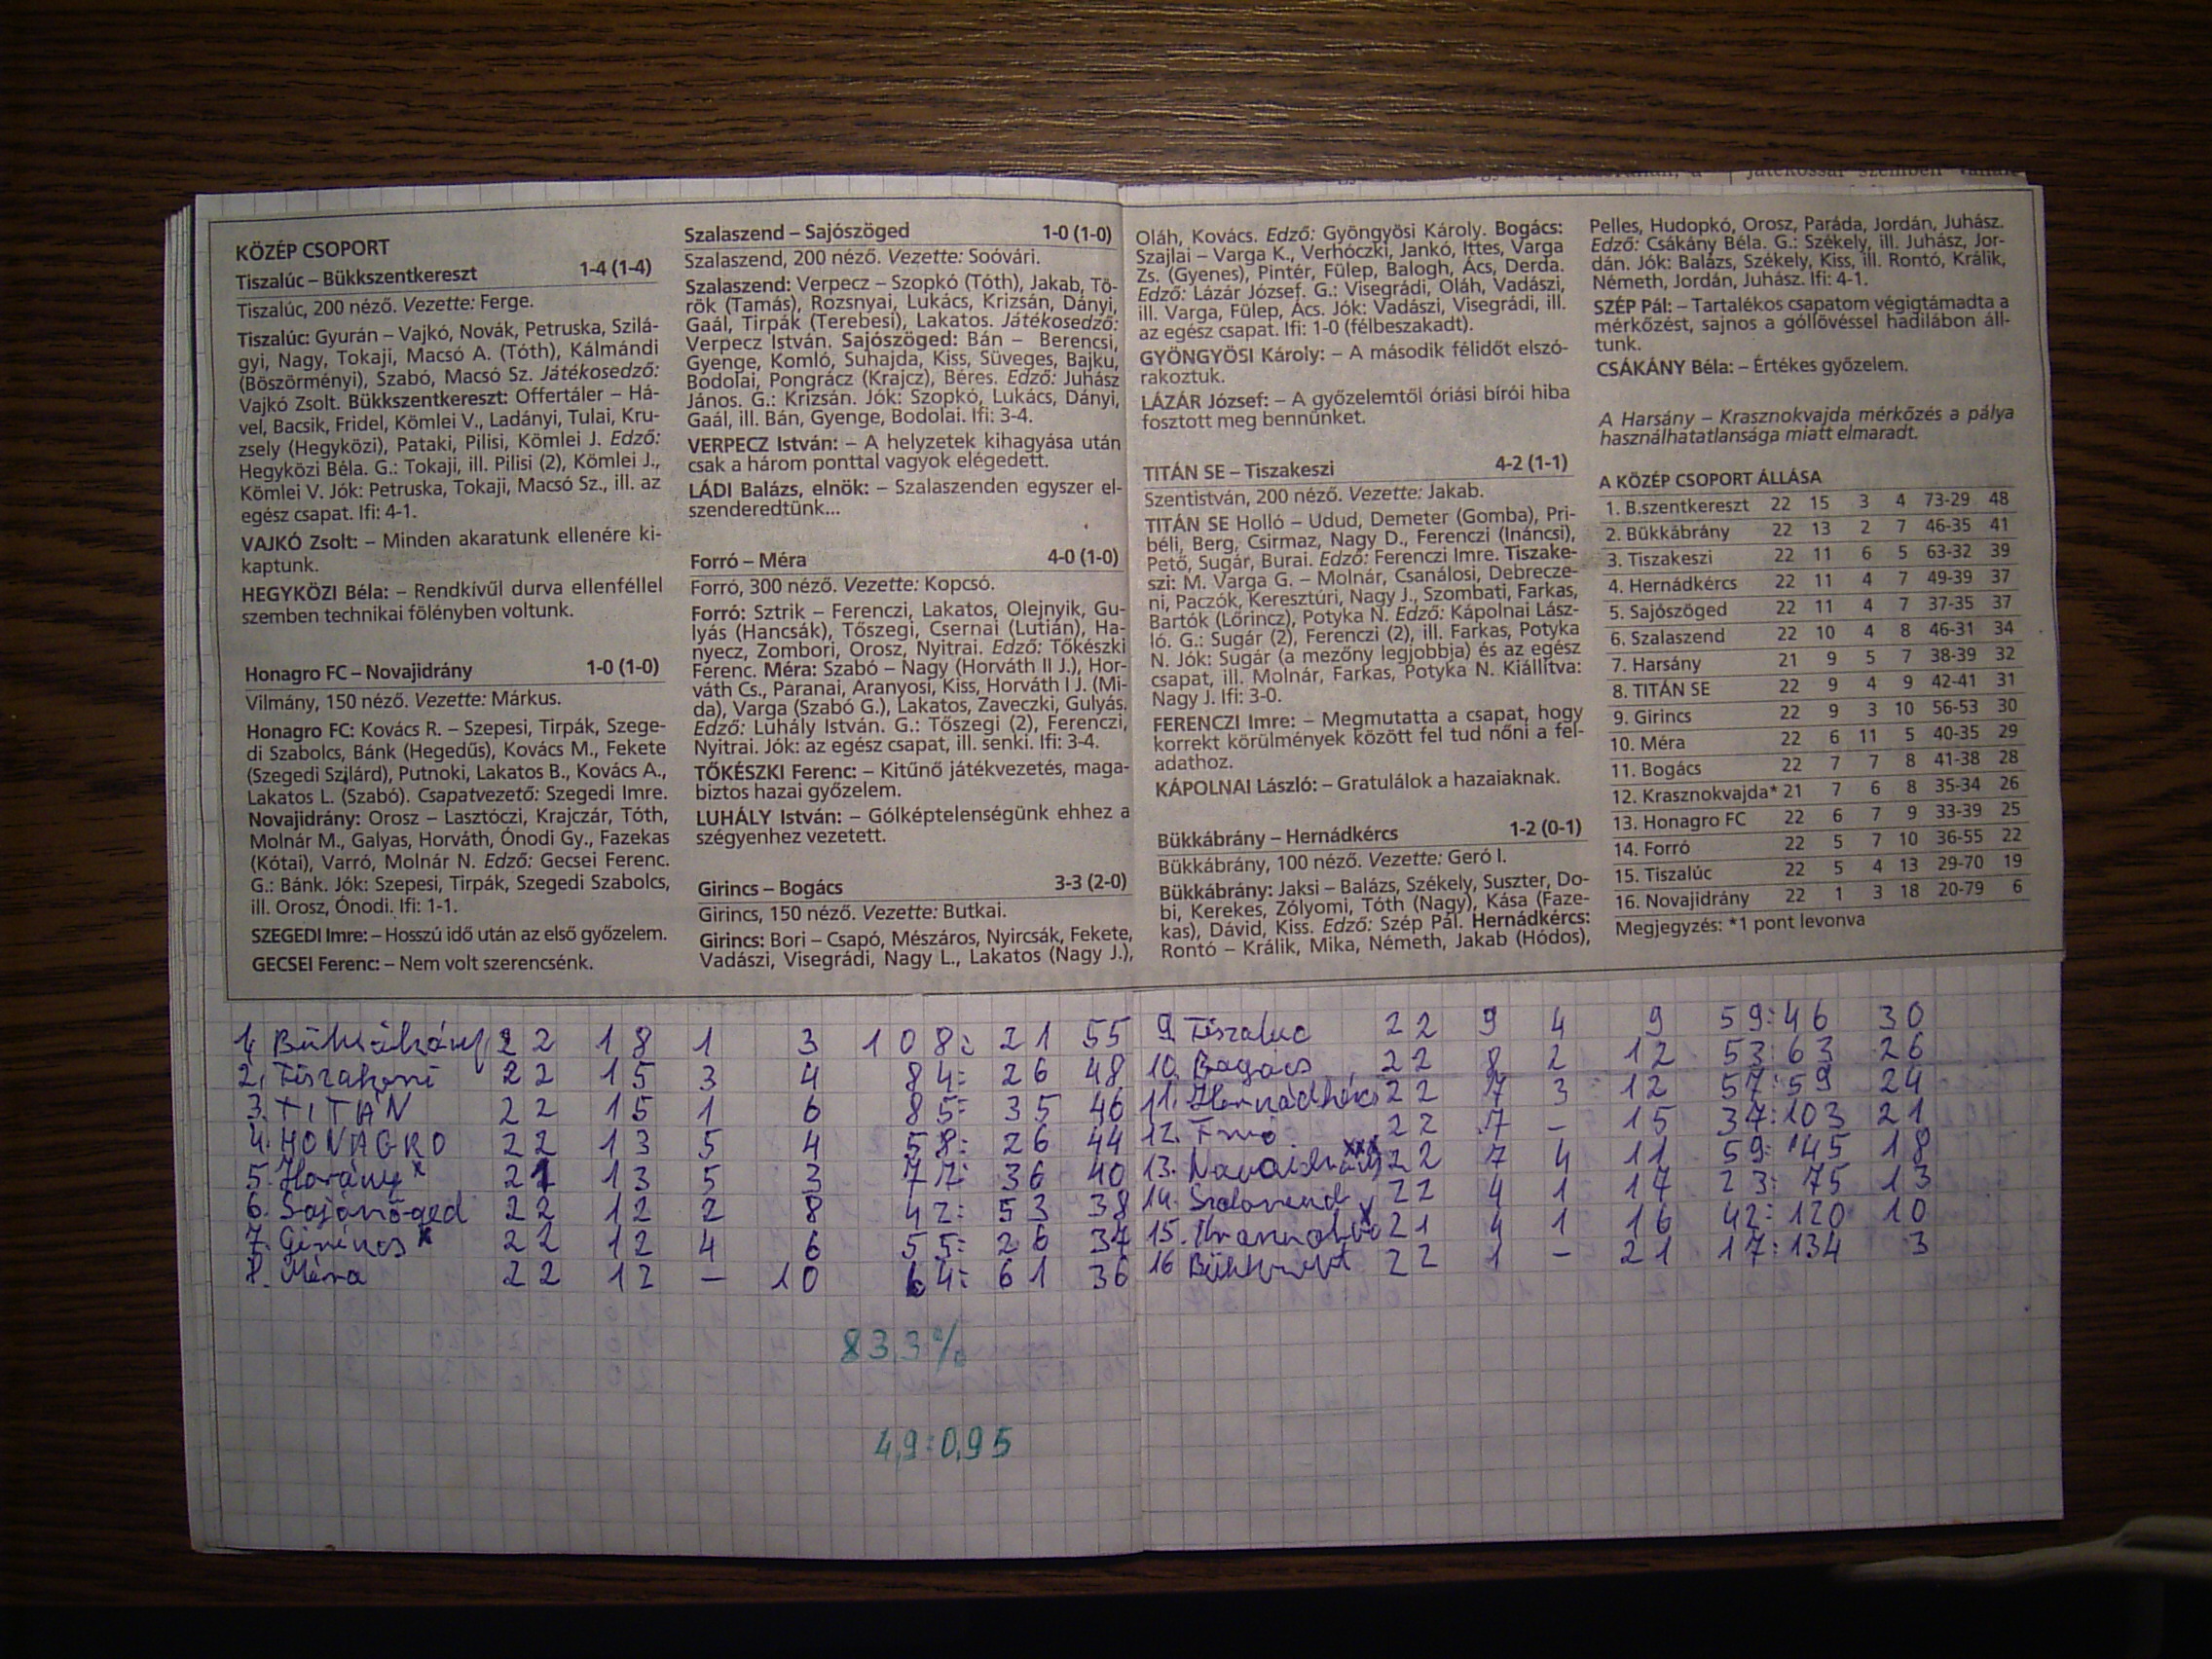 KÖZÉP CSOPORT
Tiszalúc – Bükkszentkereszt 1-4 (1-4)
Tiszalúc, 200 néző. Vezette: Ferge.
Tiszalúc: Gyurán – Vajkó, Novák, Petruska, Szilá-
gyi, Nagy, Tokaji, Macsó A. (Tóth), Kálmándi
(Böszörményi), Szabó, Macsó Sz. Játékosedző:
Vajkó Zsolt. Bükkszentkereszt: Offertáler – Há-
vel, Bacsik, Fridel, Kömlei V., Ladányi, Tulai, Kru-
zsely (Hegyközi), Pataki, Pilisi, Kömlei J. Edző:
Hegyközi Béla. G.: Tokaji, ill. Pilisi (2), Kömlei J.,
Kömlei V. Jók: Petruska, Tokaji, Macsó Sz., ill. az
egész csapat. Ifi: 4-1.
VAJKÓ Zsolt: – Minden akaratunk ellenére ki-
kaptunk.
HEGYKÖZI Béla: – Rendkívűl durva ellenféllel
szemben technikai fölényben voltunk.
Honagro FC – Novajidrány 1-0 (1-0)
Vilmány, 150 néző. Vezette: Márkus.
Honagro FC: Kovács R. – Szepesi, Tirpák, Szege-
di Szabolcs, Bánk (Hegedűs), Kovács M., Fekete
(Szegedi Szilárd), Putnoki, Lakatos B., Kovács A.,
Lakatos L. (Szabó). Csapatvezető: Szegedi Imre.
Novajidrány: Orosz – Lasztóczi, Krajczár, Tóth,
Molnár M., Galyas, Horváth, Ónodi Gy., Fazekas
(Kótai), Varró, Molnár N. Edző: Gecsei Ferenc.
G.: Bánk. Jók: Szepesi, Tirpák, Szegedi Szabolcs,
ill. Orosz, Ónodi. Ifi: 1-1.
SZEGEDI Imre: – Hosszú idő után az első győzelem.
GECSEI Ferenc: – Nem volt szerencsénk.
Szalaszend – Sajószöged 1-0 (1-0)
Szalaszend, 200 néző. Vezette: Soóvári.
Szalaszend: Verpecz – Szopkó (Tóth), Jakab, Tö-
rök (Tamás), Rozsnyai, Lukács, Krizsán, Dányi,
Gaál, Tirpák (Terebesi), Lakatos. Játékosedző:
Verpecz István. Sajószöged: Bán – Berencsi,
Gyenge, Komló, Suhajda, Kiss, Süveges, Bajku,
Bodolai, Pongrácz (Krajcz), Béres. Edző: Juhász
János. G.: Krizsán. Jók: Szopkó, Lukács, Dányi,
Gaál, ill. Bán, Gyenge, Bodolai. Ifi: 3-4.
VERPECZ István: – A helyzetek kihagyása után
csak a három ponttal vagyok elégedett.
LÁDI Balázs, elnök: – Szalaszenden egyszer el-
szenderedtünk...
Forró – Méra 4-0 (1-0)
Forró, 300 néző. Vezette: Kopcsó.
Forró: Sztrik – Ferenczi, Lakatos, Olejnyik, Gu-
lyás (Hancsák), Tőszegi, Csernai (Lutián), Ha-
nyecz, Zombori, Orosz, Nyitrai. Edző: Tőkészki
Ferenc. Méra: Szabó – Nagy (Horváth II J.), Hor-
váth Cs., Paranai, Aranyosi, Kiss, Horváth I J. (Mi-
da), Varga (Szabó G.), Lakatos, Zaveczki, Gulyás.
Edző: Luhály István. G.: Tőszegi (2), Ferenczi,
Nyitrai. Jók: az egész csapat, ill. senki. Ifi: 3-4.
TŐKÉSZKI Ferenc: – Kitűnő játékvezetés, maga-
biztos hazai győzelem.
LUHÁLY István: – Gólképtelenségünk ehhez a
szégyenhez vezetett.
Girincs – Bogács 3-3 (2-0)
Girincs, 150 néző. Vezette: Butkai.
Girincs: Bori – Csapó, Mészáros, Nyircsák, Fekete,
Vadászi, Visegrádi, Nagy L., Lakatos (Nagy J.),
Oláh, Kovács. Edző: Gyöngyösi Károly. Bogács:
Szajlai – Varga K., Verhóczki, Jankó, Ittes, Varga
Zs. (Gyenes), Pintér, Fülep, Balogh, Ács, Derda.
Edző: Lázár József. G.: Visegrádi, Oláh, Vadászi,
ill. Varga, Fülep, Ács. Jók: Vadászi, Visegrádi, ill.
az egész csapat. Ifi: 1-0 (félbeszakadt).
GYÖNGYÖSI Károly: – A második félidőt elszó-
rakoztuk.
LÁZÁR József: – A győzelemtől óriási bírói hiba
fosztott meg bennünket.
TITÁN SE – Tiszakeszi 4-2 (1-1)
Szentistván, 200 néző. Vezette: Jakab.
TITÁN SE Holló – Udud, Demeter (Gomba), Pri-
béli, Berg, Csirmaz, Nagy D., Ferenczi (Ináncsi),
Pető, Sugár, Burai. Edző: Ferenczi Imre. Tiszake-
szi: M. Varga G. – Molnár, Csanálosi, Debrecze-
ni, Paczók, Keresztúri, Nagy J., Szombati, Farkas,
Bartók (Lőrincz), Potyka N. Edző: Kápolnai Lász-
ló. G.: Sugár (2), Ferenczi (2), ill. Farkas, Potyka
N. Jók: Sugár (a mezőny legjobbja) és az egész
csapat, ill. Molnár, Farkas, Potyka N. Kiállítva:
Nagy J. Ifi: 3-0.
FERENCZI Imre: – Megmutatta a csapat, hogy
korrekt körülmények között fel tud nőni a fel-
adathoz.
KÁPOLNAI László: – Gratulálok a hazaiaknak.
Bükkábrány – Hernádkércs 1-2 (0-1)
Bükkábrány, 100 néző. Vezette: Geró I.
Bükkábrány: Jaksi – Balázs, Székely, Suszter, Do-
bi, Kerekes, Zólyomi, Tóth (Nagy), Kása (Faze-
kas), Dávid, Kiss. Edző: Szép Pál. Hernádkércs:
Rontó – Králik, Mika, Németh, Jakab (Hódos),
Pelles, Hudopkó, Orosz, Paráda, Jordán, Juhász.
Edző: Csákány Béla. G.: Székely, ill. Juhász, Jor-
dán. Jók: Balázs, Székely, Kiss, ill. Rontó, Králik,
Németh, Jordán, Juhász. Ifi: 4-1.
SZÉP Pál: – Tartalékos csapatom végigtámadta a
mérkőzést, sajnos a góllövéssel hadilábon áll-
tunk.
CSÁKÁNY Béla: – Értékes győzelem.
A Harsány – Krasznokvajda mérkőzés a pálya
használhatatlansága miatt elmaradt.
A KÖZÉP CSOPORT ÁLLÁSA
1. B.szentkereszt 22 15 3 4 73-29 48
2. Bükkábrány 22 13 2 7 46-35 41
3. Tiszakeszi 22 11 6 5 63-32 39
4. Hernádkércs 22 11 4 7 49-39 37
5. Sajószöged 22 11 4 7 37-35 37
6. Szalaszend 22 10 4 8 46-31 34
7. Harsány 21 9 5 7 38-39 32
8. TITÁN SE 22 9 4 9 42-41 31
9. Girincs 22 9 3 10 56-53 30
10. Méra 22 6 11 5 40-35 29
11. Bogács 22 7 7 8 41-38 28
12. Krasznokvajda* 21 7 6 8 35-34 26
13. Honagro FC 22 6 7 9 33-39 25
14. Forró 22 5 7 10 36-55 22
15. Tiszalúc 22 5 4 13 29-70 19
16. Novajidrány 22 1 3 18 20-79 6
Megjegyzés: *1 pont levonva
1. Bükkábrány 22 18 1 3 108:21 55
2. Tiszakeszi 22 15 3 4 84:26 48
3. TITÁN 22 15 1 6 85:35 46
4. HONAGRO 22 13 5 4 58:26 44
5. Harsány x 21 13 5 3 77:36 40
6. Sajószöged 22 12 2 8 42:53 38
7. Girincs x 22 12 4 6 55:26 37
8. Méra 22 12 – 10 64:61 36
9. Tiszaluc 22 9 4 9 59:46 30
10. Bogács 22 8 2 12 53:63 26
11. Hernádkércs 22 7 3 12 57:59 24
12. Forró 22 7 – 15 37:103 21
13. Novajidrány xxx 22 7 4 11 59:45 18
14. Szalaszend 22 4 1 17 23:75 13
15. 21 4 1 16 42:120 10
16 22 1 – 21 17:134 3
83,3%
4,9:0,95